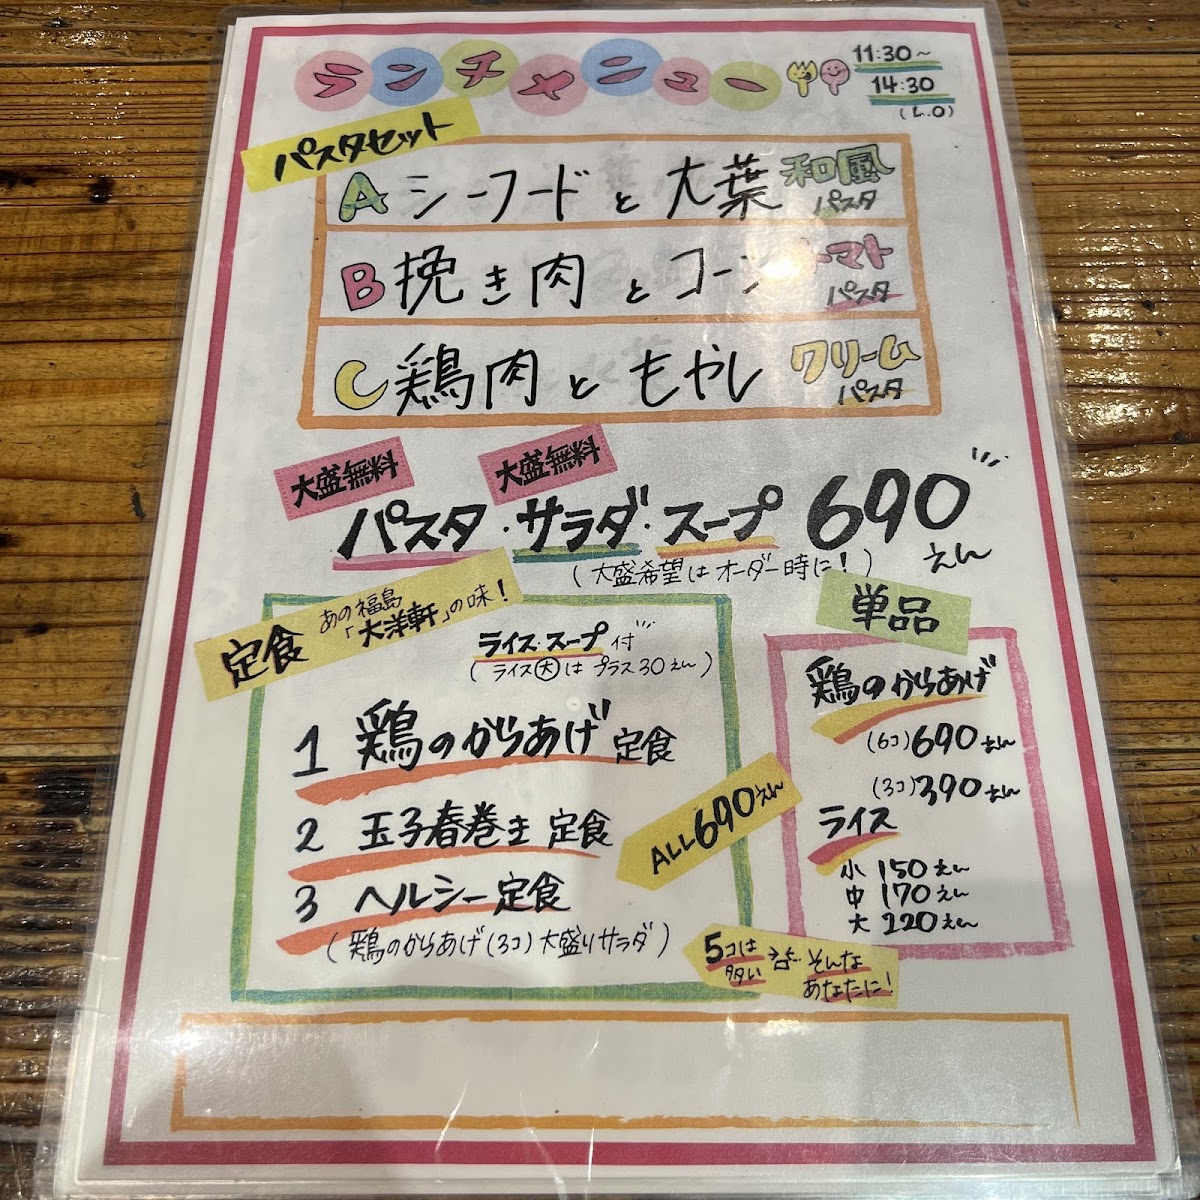 ランチメニュー 11:30～
14:30
(L.O)
パスタセット
A シーフードと大葉 和風
パスタ
B 挽き肉とコーン トマト
パスタ
C 鶏肉ともやし クリーム
パスタ
大盛無料 大盛無料
パスタ・サラダ・スープ 690
えん
(大盛希望はオーダー時に!)
定食 あの福島
「大洋軒」の味!
ライス・スープ付
(ライス大はプラス30えん)
1 鶏のからあげ定食
2 玉子春巻き定食
3 ヘルシー定食
(鶏のからあげ(3コ)大盛りサラダ)
ALL690えん
単品
鶏のからあげ
(6コ)690えん
(3コ)390えん
ライス
小 150えん
中 170えん
大 220えん
5コは
多い
そんな
あなたに!